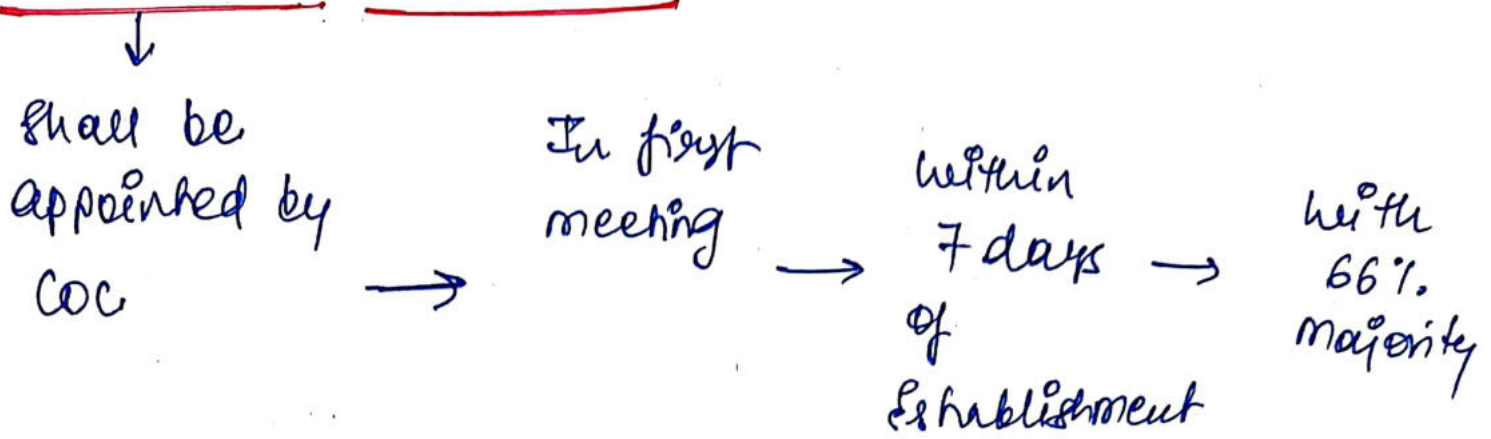 ↓
Shall be
appointed by
COC
→
In first
meeting
→
within
7 days
of
Establishment
→
with
66%.
majority